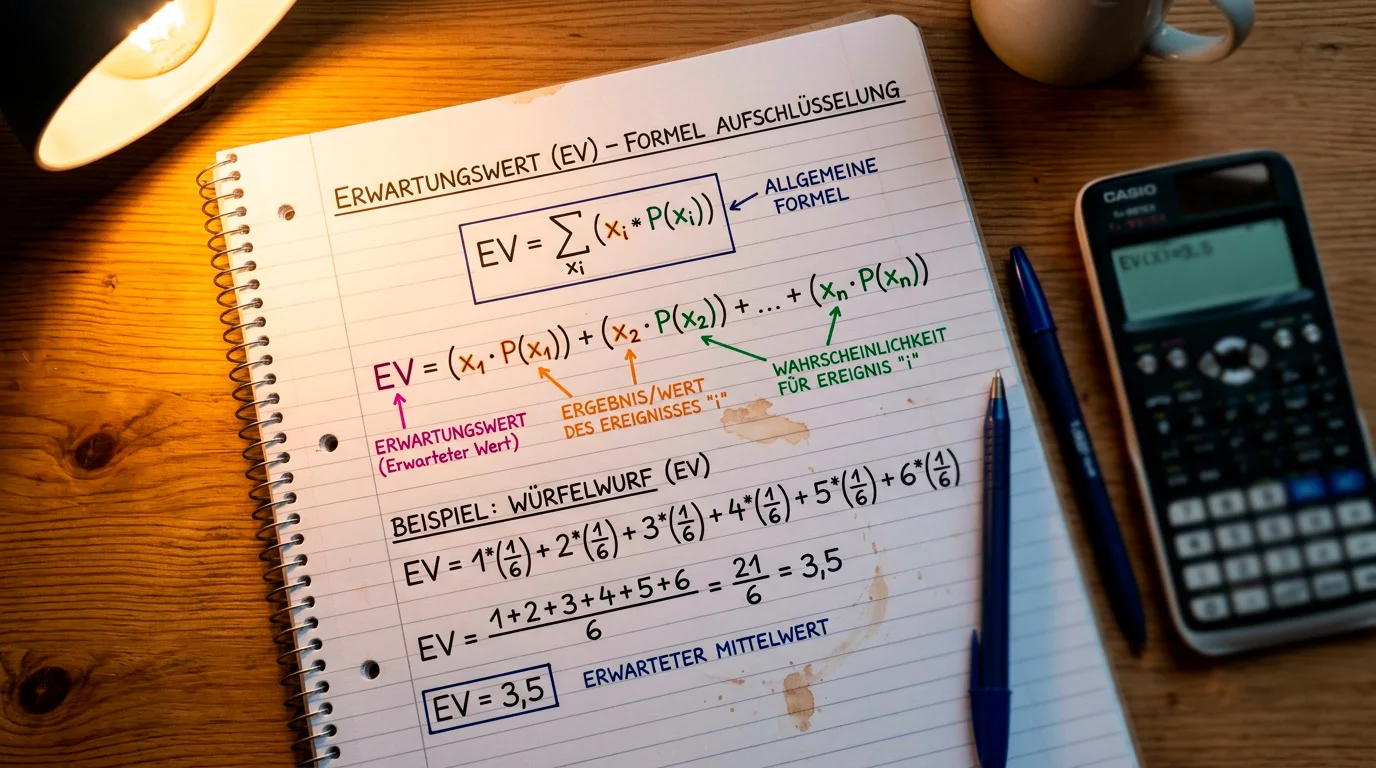 ERWARTUNGSWERT (EV) – FORMEL AUFSCHLÜSSELUNG
EV = ∑ (xᵢ * P(xᵢ))
xᵢ
ALLGEMEINE
FORMEL
EV = (x₁ · P(x₁)) + (x₂ · P(x₂)) + ... + (xₙ · P(xₙ))
ERWARTUNGSWERT
(Erwarteter Wert)
ERGEBNIS/WERT
DES EREIGNISSES "i"
WAHRSCHEINLICHKEIT
FÜR EREIGNIS "i"
BEISPIEL: WÜRFELWURF (EV)
EV = 1*(1/6) + 2*(1/6) + 3*(1/6) + 4*(1/6) + 5*(1/6) + 6*(1/6)
EV = (1+2+3+4+5+6)/6 = 21/6 = 3,5
EV = 3,5
ERWARTETER MITTELWERT
CASIO
EV(X)=3,5